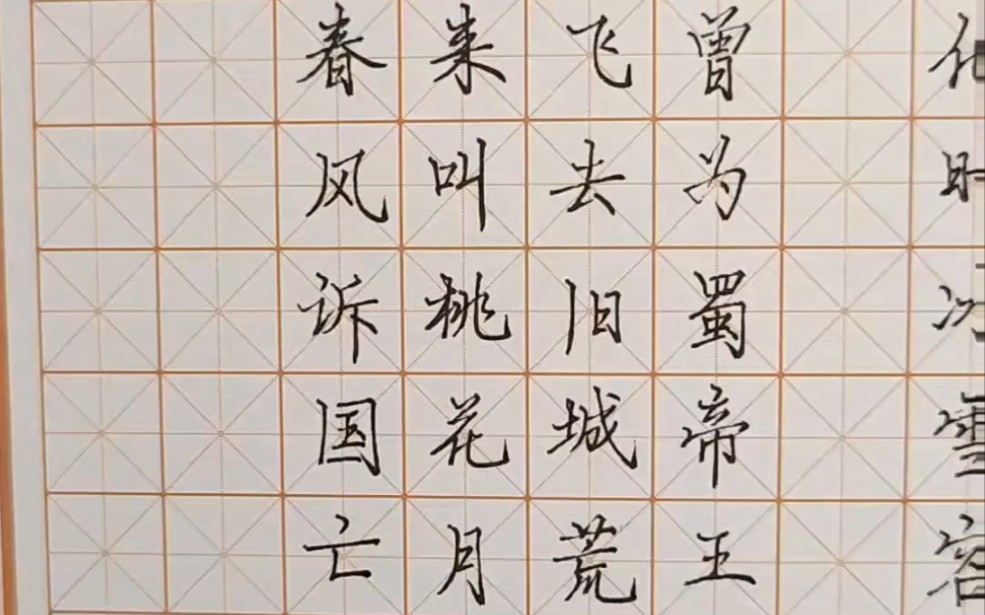 曾为蜀帝王
飞去旧城荒
来叫桃花月
春风诉国亡